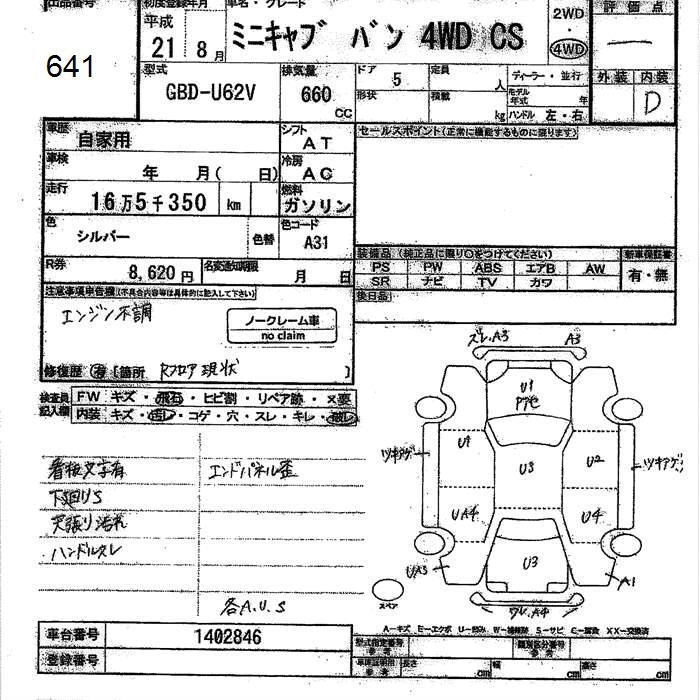 出品番号 初度登録年月 車名・グレード 評価点
641 平成 21 8月 ミニキャブ バン 4WD CS 2WD ・ 4WD —
型式 GBD-U62V 排気量 660 CC ドア 5 定員 人 ディーラー・並行 外装 内装 D
形状 積載 kg モデル年式 年 ハンドル 左・右
車歴 自家用 シフト AT セールスポイント(正常に機能するものに限ります)
車検 年 月( 日) 冷房 AC
走行 16万5千350 km 燃料 ガソリン
色 シルバー 色替 色コード A31
装備品 (純正品に限り○をつけてください) 新車保証書
R券 8,620円 名変通知期限 月 日 PS PW ABS エアB AW 有・無
SR ナビ TV カワ
注意事項申告欄(不具合内容等は具体的に記入して下さい) 後日品
エンジン不調 ノークレーム車
no claim
修復歴 有 [箇所 Rフロア現状 ]
検査員記入欄 FW キズ・飛石・ヒビ割・リペア跡・×要
内装 キズ・汚レ・コゲ・穴・スレ・キレ・破レ
ズレ.A3 A3
U1
P7色
ツキアゲ U1 U3 U2 ツキアゲ
UA4 U4
UA3 U3 A1
スペア ワレ.A4
看板文字有 エンドパネル歪
下廻りS
天張り汚れ
ハンドルスレ
各A.U.S
A—キズ E—エクボ U—凹み W—補修跡 S—サビ C—腐食 XX—交換済
車台番号 1402846 型式指定番号 参考 類別区分番号 参考
登録番号 車庫証明用 参考 長さ cm 幅 cm 高さ cm